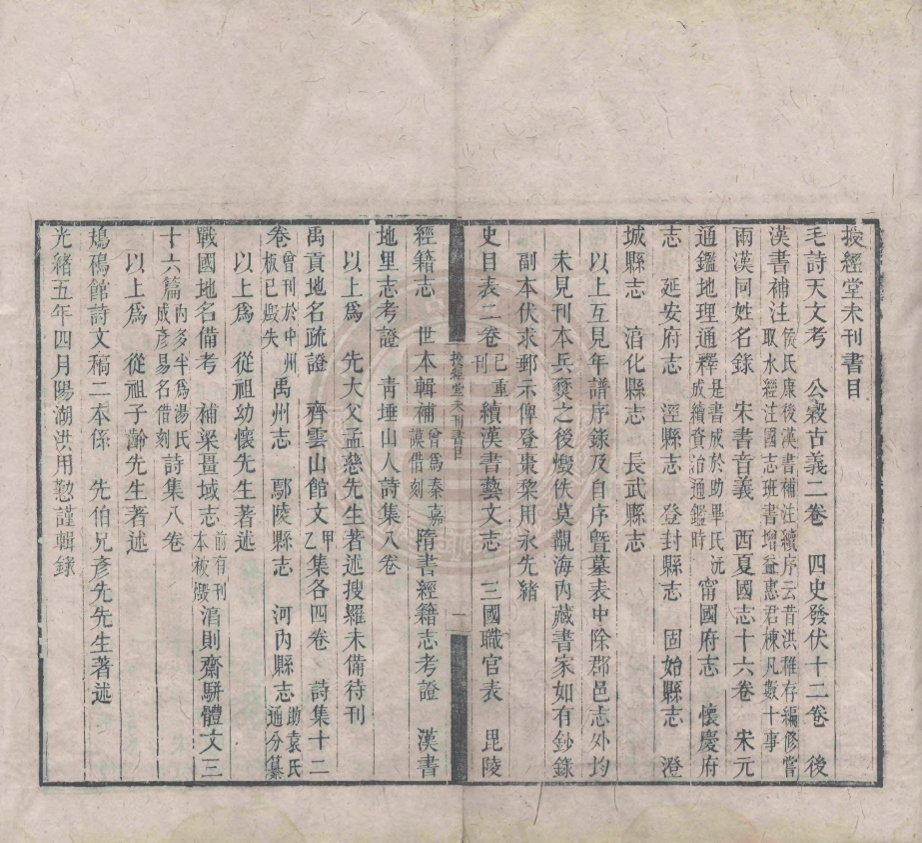 授經堂未刊書目
毛詩天文考　公穀古義二卷　四史發伏十二卷　後
漢書補注侯氏康後漢書補注續序云昔洪稚存編修嘗取水經注國志班書增益惠君棟凡數十事
兩漢同姓名錄　宋書音義　西夏國志十六卷　宋元
通鑑地理通釋是書成於助畢氏沅成續資治通鑑時　甯國府志　懷慶府
志　延安府志　涇縣志　登封縣志　固始縣志　澄
城縣志　淯化縣志　長武縣志
以上互見年譜序錄及自序暨墓表中除郡邑志外均
未見刊本兵燹之後燬佚莫覯海內藏書家如有鈔錄
副本伏求郵示俾登棗棃用永先緒
授經堂未刊書目
一
史目表二卷已重刊　續漢書藝文志　三國職官表　毘陵
經籍志　世本輯補曾爲秦嘉謨借刻　隋書經籍志考證　漢書
地里志考證　靑埵山人詩集八卷
以上爲　先大父孟慈先生著述搜羅未備待刊
禹貢地名疏證　齊雲山館文甲乙集各四卷　詩集十二
卷曾刊於中州板已燬失　禹州志　鄢陵縣志　河內縣志助袁氏通分纂
以上爲　從祖幼懷先生著述
戰國地名備考　補梁疆域志前有刊本板燬　淯則齋駢體文三
十六篇內多半爲湯氏成彥易名借刻　詩集八卷
以上爲　從祖子齡先生著述
鳩碼館詩文稿二本係　先伯兄彥先先生著述
光緒五年四月陽湖洪用懃謹輯錄